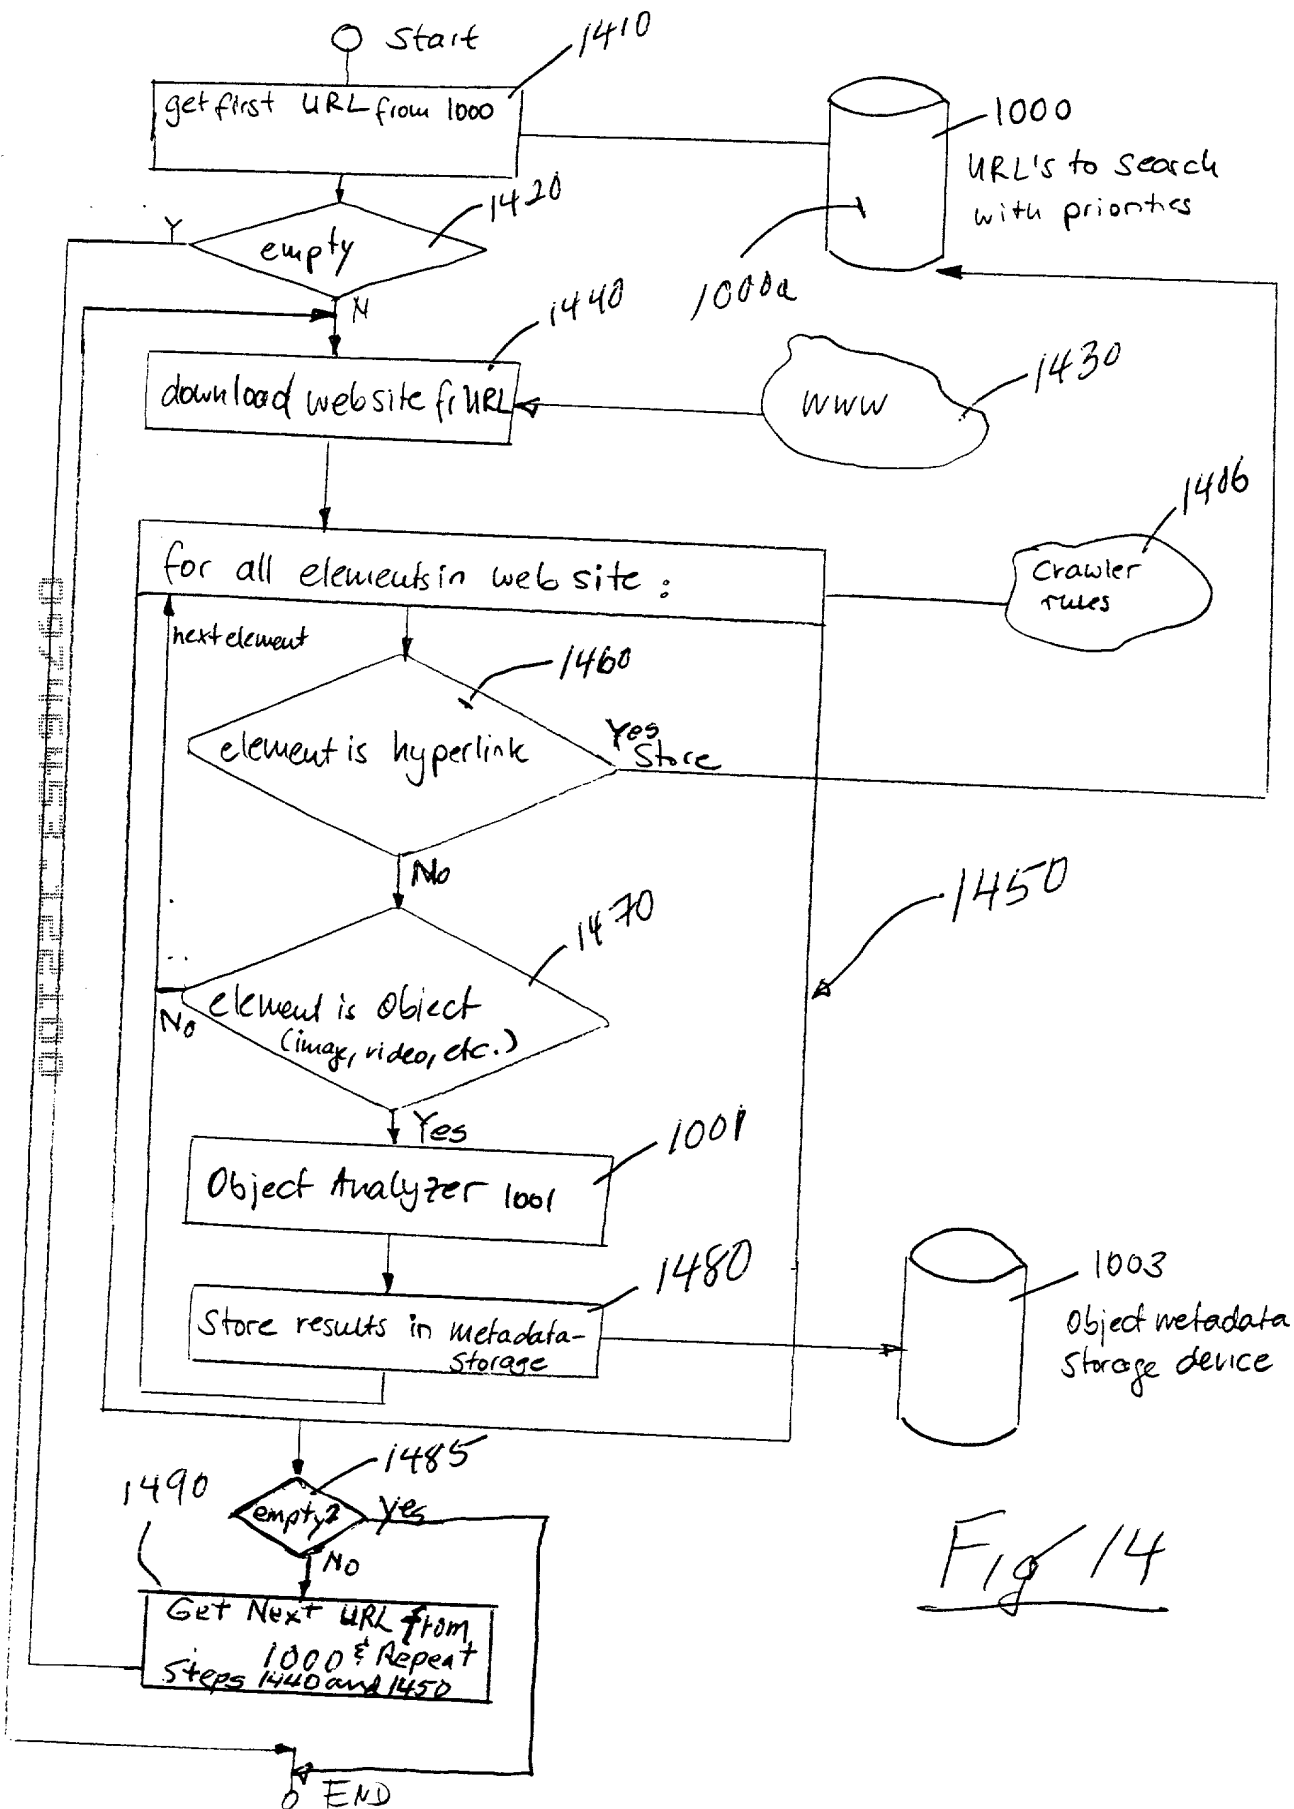 Start
1410
get first URL from 1000
1000
URL's to search
with priorities
1420
Y
empty
1000a
N
1440
1430
download website fr URL
WWW
1406
for all elements in web site :
Crawler
rules
next element
1460
element is hyperlink
Yes
Store
No
1450
1470
element is Object
(image, video, etc.)
No
Yes
1001
Object Analyzer 1001
1480
1003
Store results in metadata-
storage
Object metadata
storage device
1485
1490
empty?
Yes
No
Get Next URL from
1000 & Repeat
Steps 1440 and 1450
Fig 14
END